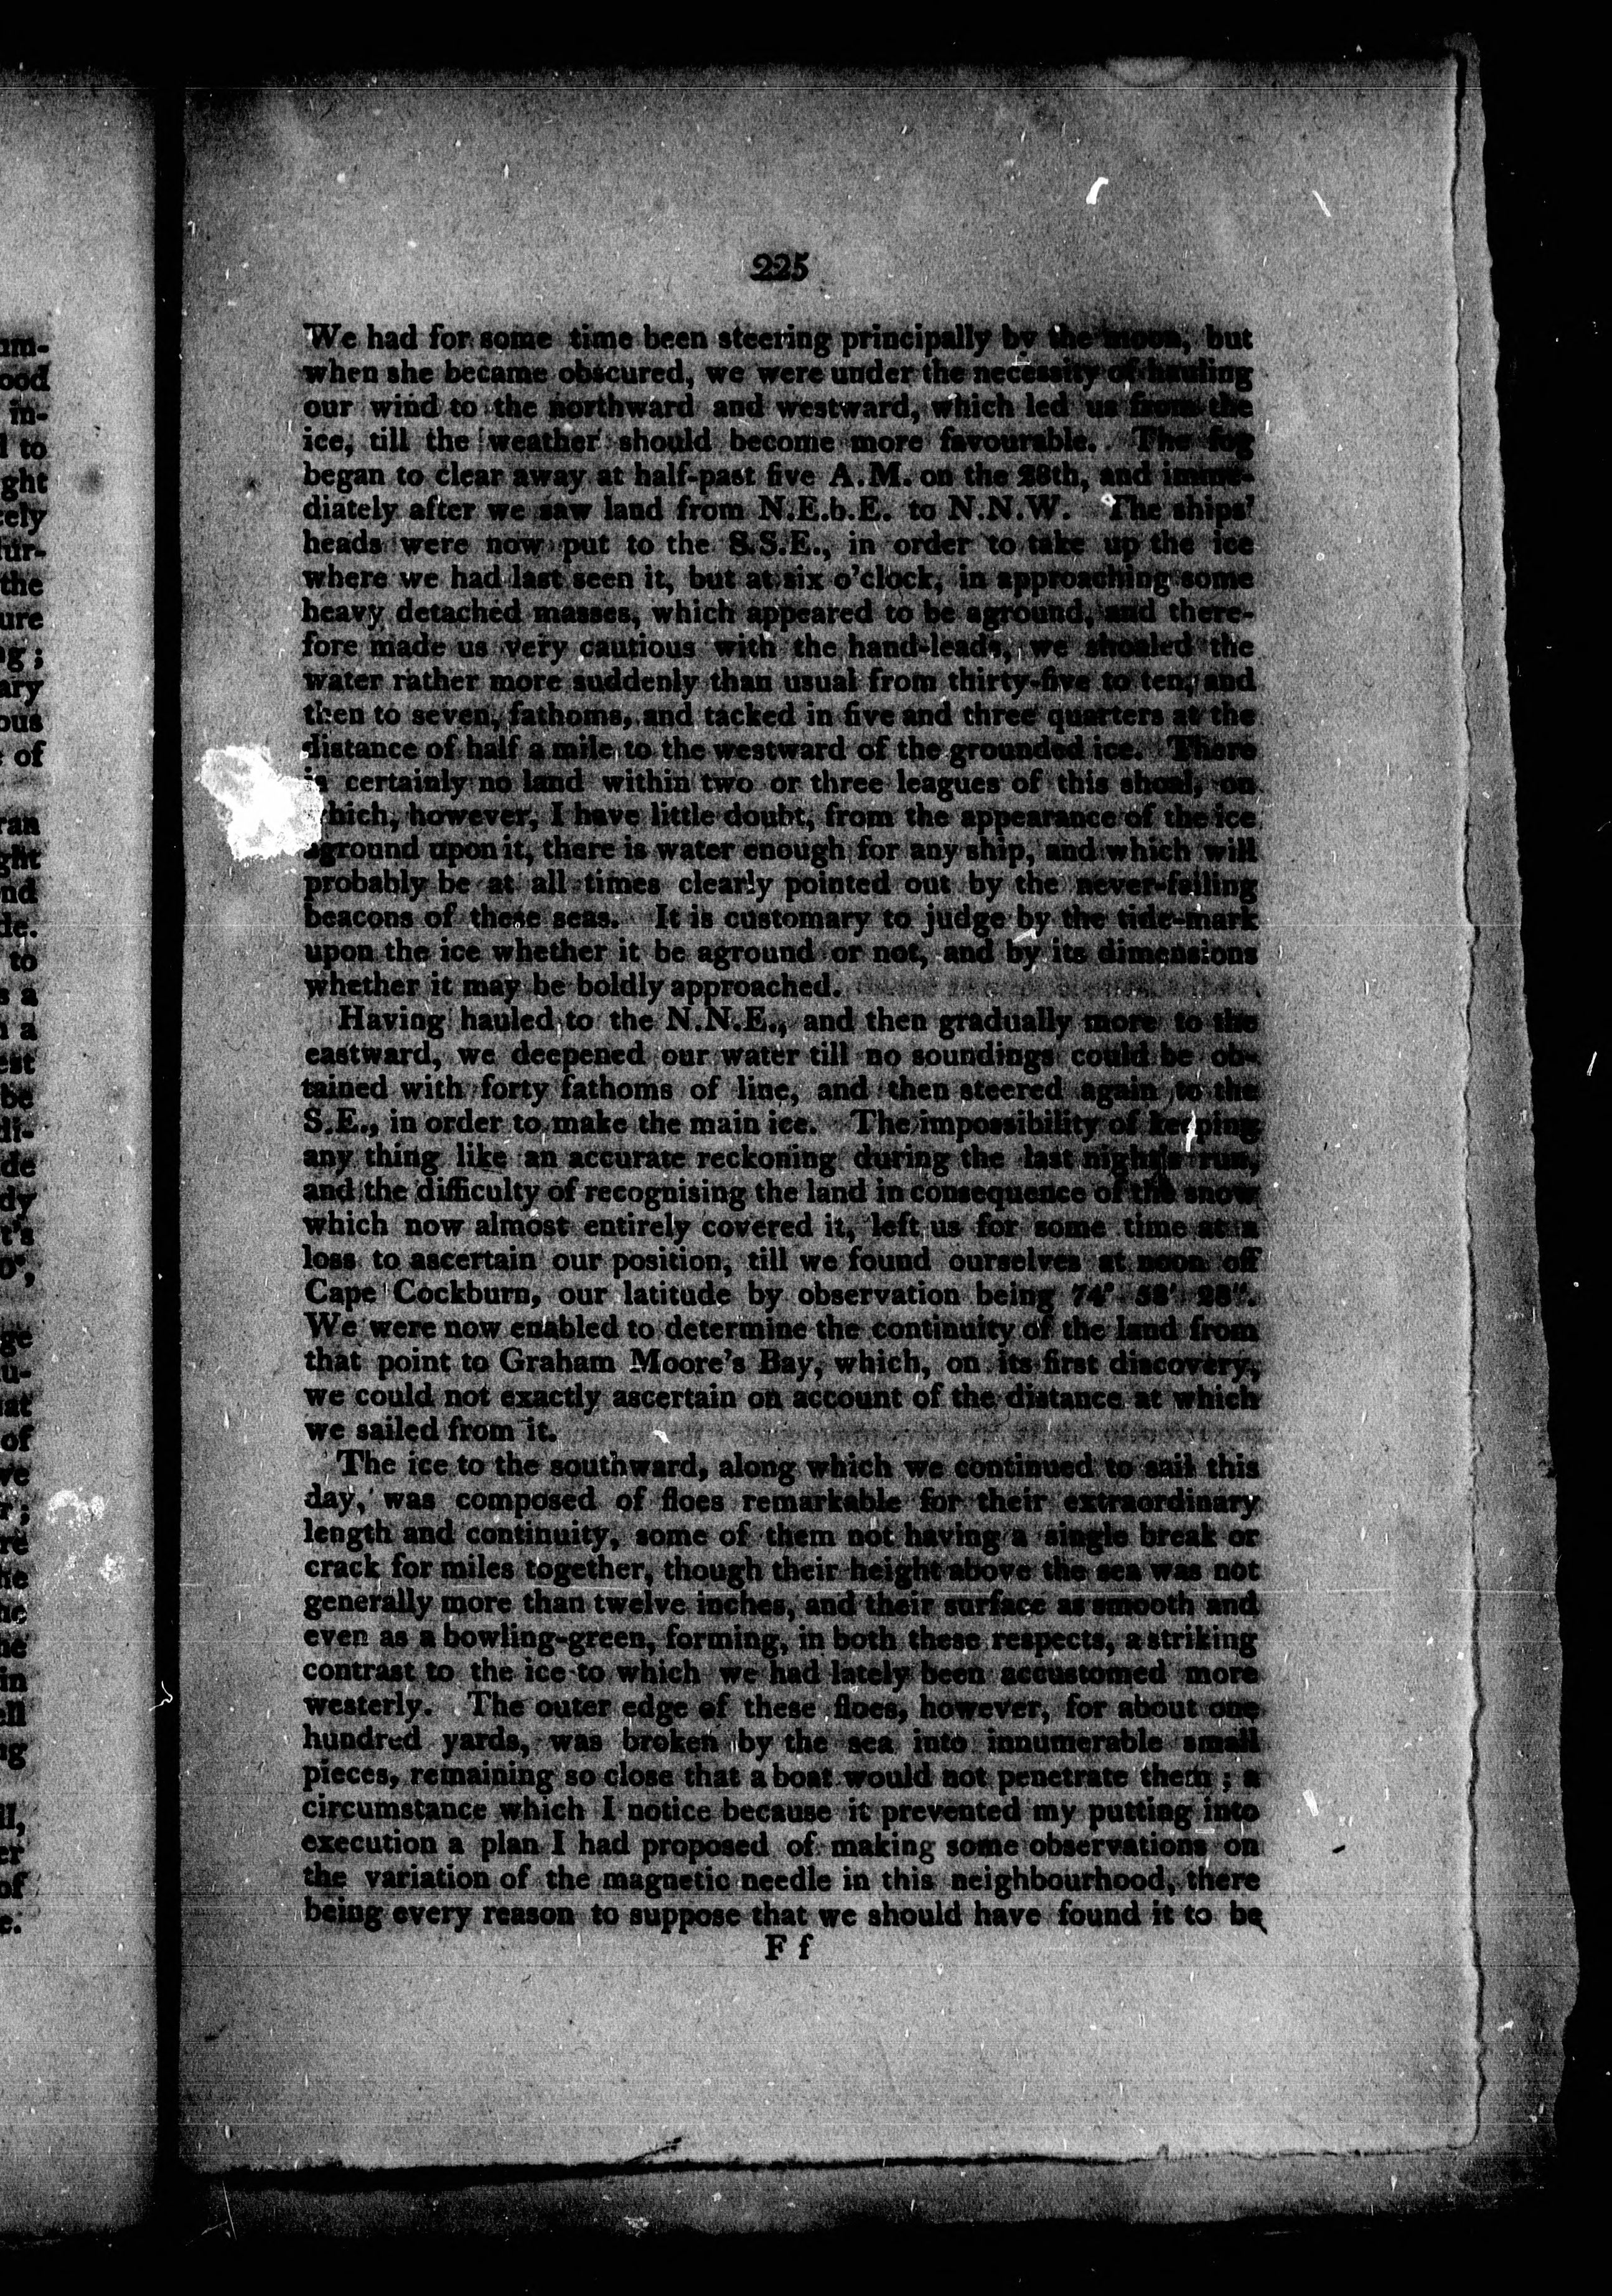 225
We had for some time been steering principally by the moon, but
when she became obscured, we were under the necessity of hauling
our wind to the northward and westward, which led us from the
ice, till the weather should become more favourable. The fog
began to clear away at half-past five A.M. on the 28th, and imme-
diately after we saw land from N.E.b.E. to N.N.W. The ships'
heads were now put to the S.S.E., in order to take up the ice
where we had last seen it, but at six o'clock, in approaching some
heavy detached masses, which appeared to be aground, and there-
fore made us very cautious with the hand-leads, we shoaled the
water rather more suddenly than usual from thirty-five to ten, and
then to seven, fathoms, and tacked in five and three quarters at the
distance of half a mile to the westward of the grounded ice. There
is certainly no land within two or three leagues of this shoal, on
which, however, I have little doubt, from the appearance of the ice
aground upon it, there is water enough for any ship, and which will
probably be at all times clearly pointed out by the never-failing
beacons of these seas. It is customary to judge by the tide-mark
upon the ice whether it be aground or not, and by its dimensions
whether it may be boldly approached.
Having hauled to the N.N.E., and then gradually more to the
eastward, we deepened our water till no soundings could be ob-
tained with forty fathoms of line, and then steered again to the
S.E., in order to make the main ice. The impossibility of keeping
any thing like an accurate reckoning during the last night's run,
and the difficulty of recognising the land in consequence of the snow
which now almost entirely covered it, left us for some time at a
loss to ascertain our position, till we found ourselves at noon off
Cape Cockburn, our latitude by observation being 74° 58' 28".
We were now enabled to determine the continuity of the land from
that point to Graham Moore's Bay, which, on its first discovery,
we could not exactly ascertain on account of the distance at which
we sailed from it.
The ice to the southward, along which we continued to sail this
day, was composed of floes remarkable for their extraordinary
length and continuity, some of them not having a single break or
crack for miles together, though their height above the sea was not
generally more than twelve inches, and their surface as smooth and
even as a bowling-green, forming, in both these respects, a striking
contrast to the ice to which we had lately been accustomed more
westerly. The outer edge of these floes, however, for about one
hundred yards, was broken by the sea into innumerable small
pieces, remaining so close that a boat would not penetrate them; a
circumstance which I notice because it prevented my putting into
execution a plan I had proposed of making some observations on
the variation of the magnetic needle in this neighbourhood, there
being every reason to suppose that we should have found it to be
F f